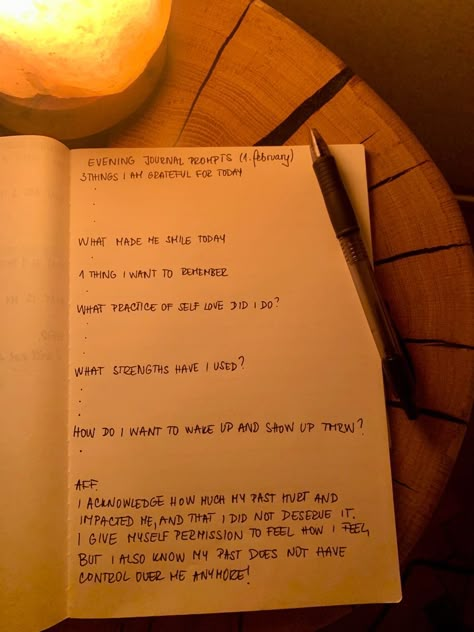 EVENING JOURNAL PROMPTS (1. february)
3 THINGS I AM GRATEFUL FOR TODAY
WHAT MADE ME SMILE TODAY
1 THING I WANT TO REMEMBER
WHAT PRACTICE OF SELF LOVE DID I DO?
WHAT STRENGTHS HAVE I USED?
HOW DO I WANT TO WAKE UP AND SHOW UP TMRW?
AFF.
I ACKNOWLEDGE HOW MUCH MY PAST HURT AND
IMPACTED ME, AND THAT I DID NOT DESERVE IT.
I GIVE MYSELF PERMISSION TO FEEL HOW I FEEL,
BUT I ALSO KNOW MY PAST DOES NOT HAVE
CONTROL OVER ME ANYMORE!